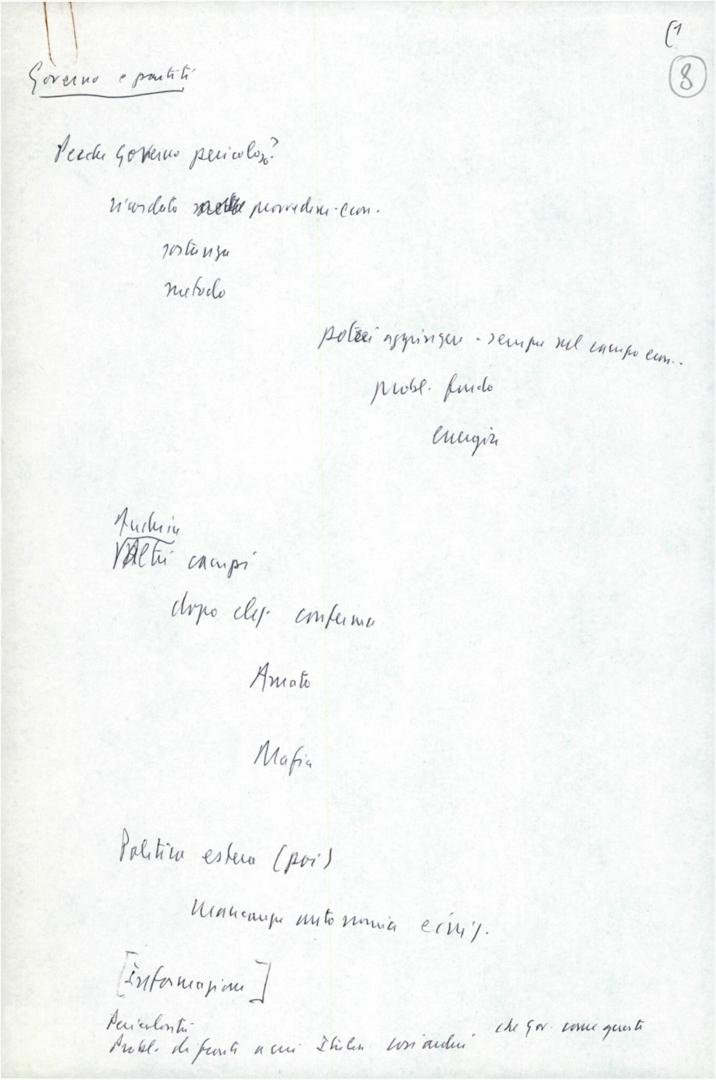 (1
8
Governo e partiti
Perché Governo pericoloso?
ricordato provvedim. econ.
sostanza
metodo
potrei aggiungere - sempre nel campo econ..
probl. fondo
energia
Anche in
Altri campi
dopo elez. conferma
Amato
Mafia
Politica estera (poi)
Mancanza autonomia e
[Informazione]
Pericolosità
che Gov. come questo
Probl. di fronte a cui Italia